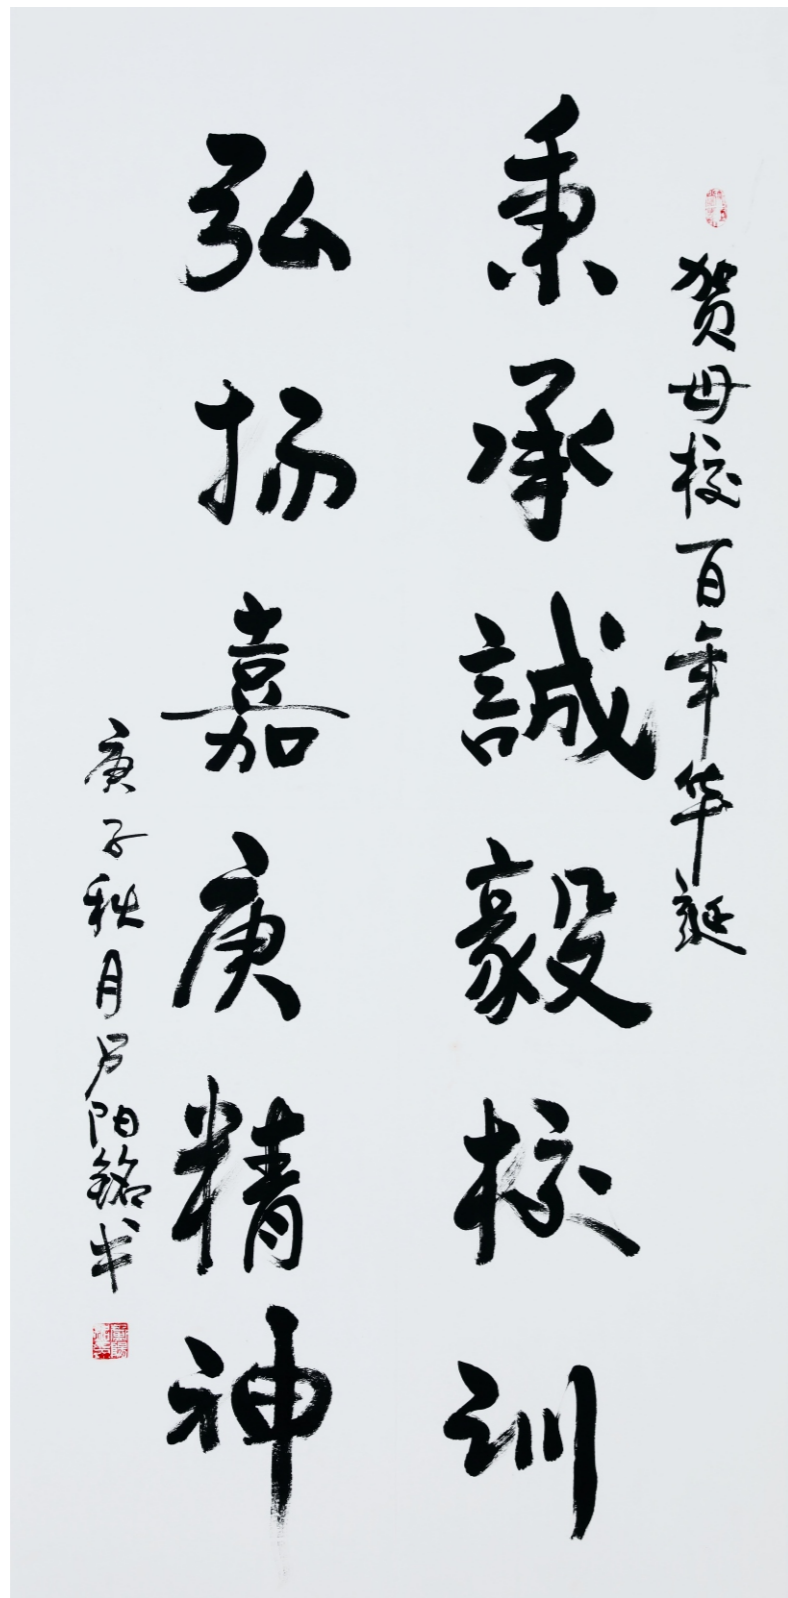 贺母校百年华诞
秉承誠毅校训
弘扬嘉庚精神
庚子秋月卢阳銘书